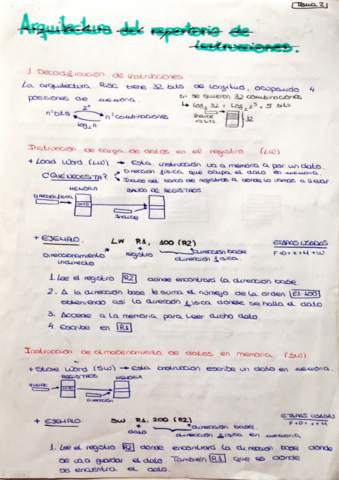 Tema 2
Arquitectura del repertorio de
instrucciones.
1 Decodificación de instrucciones
La arquitectura Risc tiene 32 bits de longitud, ocupando 4
posiciones de memoria.
si se quieren 32 combinaciones
log₂ 32 = log₂ 2⁵ = 5 bits
nº bits 2ⁿ nº combinaciones
log₂ n
32
Instrucción de carga de datos en el registro (LW)
+ Load Word (LW) → Esta instrucción va a memoria a por un dato.
¿QUÉ NECESITA? Dirección física que ocupa el dato en memoria.
Índice del banco de registros a donde lo vamos a llevar.
MEMORIA
BANCO DE REGISTROS
DATO
ÍNDICE
+ EJEMPLO. LW R1, 100 (R2)
Direccionamiento
indirecto
registro
dirección base
dirección física
ETAPAS USADAS
F+D+X+M+W
1. Lee el registro R2 donde encontrará la dirección base
2. A la dirección base le suma el número de la orden
obteniendo así la dirección física donde se halla el dato
3. Accede a la memoria para leer dicho dato
4 Escribe en R1
Instrucción de almacenamiento de datos en memoria. (SW)
+ Store Word (SW) → Esta instrucción escribe un dato en memoria.
REGISTROS
MEMORIA
ÍNDICE
DATO
DIRECCIÓN
+ EJEMPLO SW R1, 200 (R2)
dato
dirección base
dirección física en memoria
ETAPAS USADAS
F+D+X+M
1. Lee el registro R2 donde encontrará la dirección base donde
se va a guardar el dato. También R1 que es donde
se encuentra el dato.